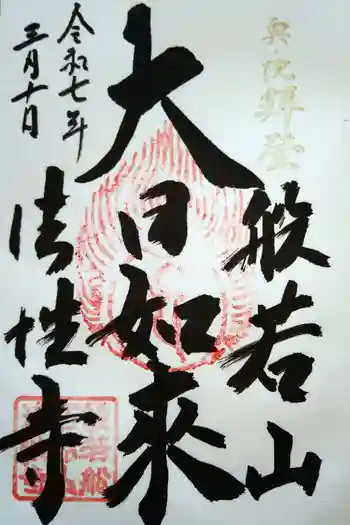 奥院拝登
般若山
大日如來
令和七年
三月十日
法性寺